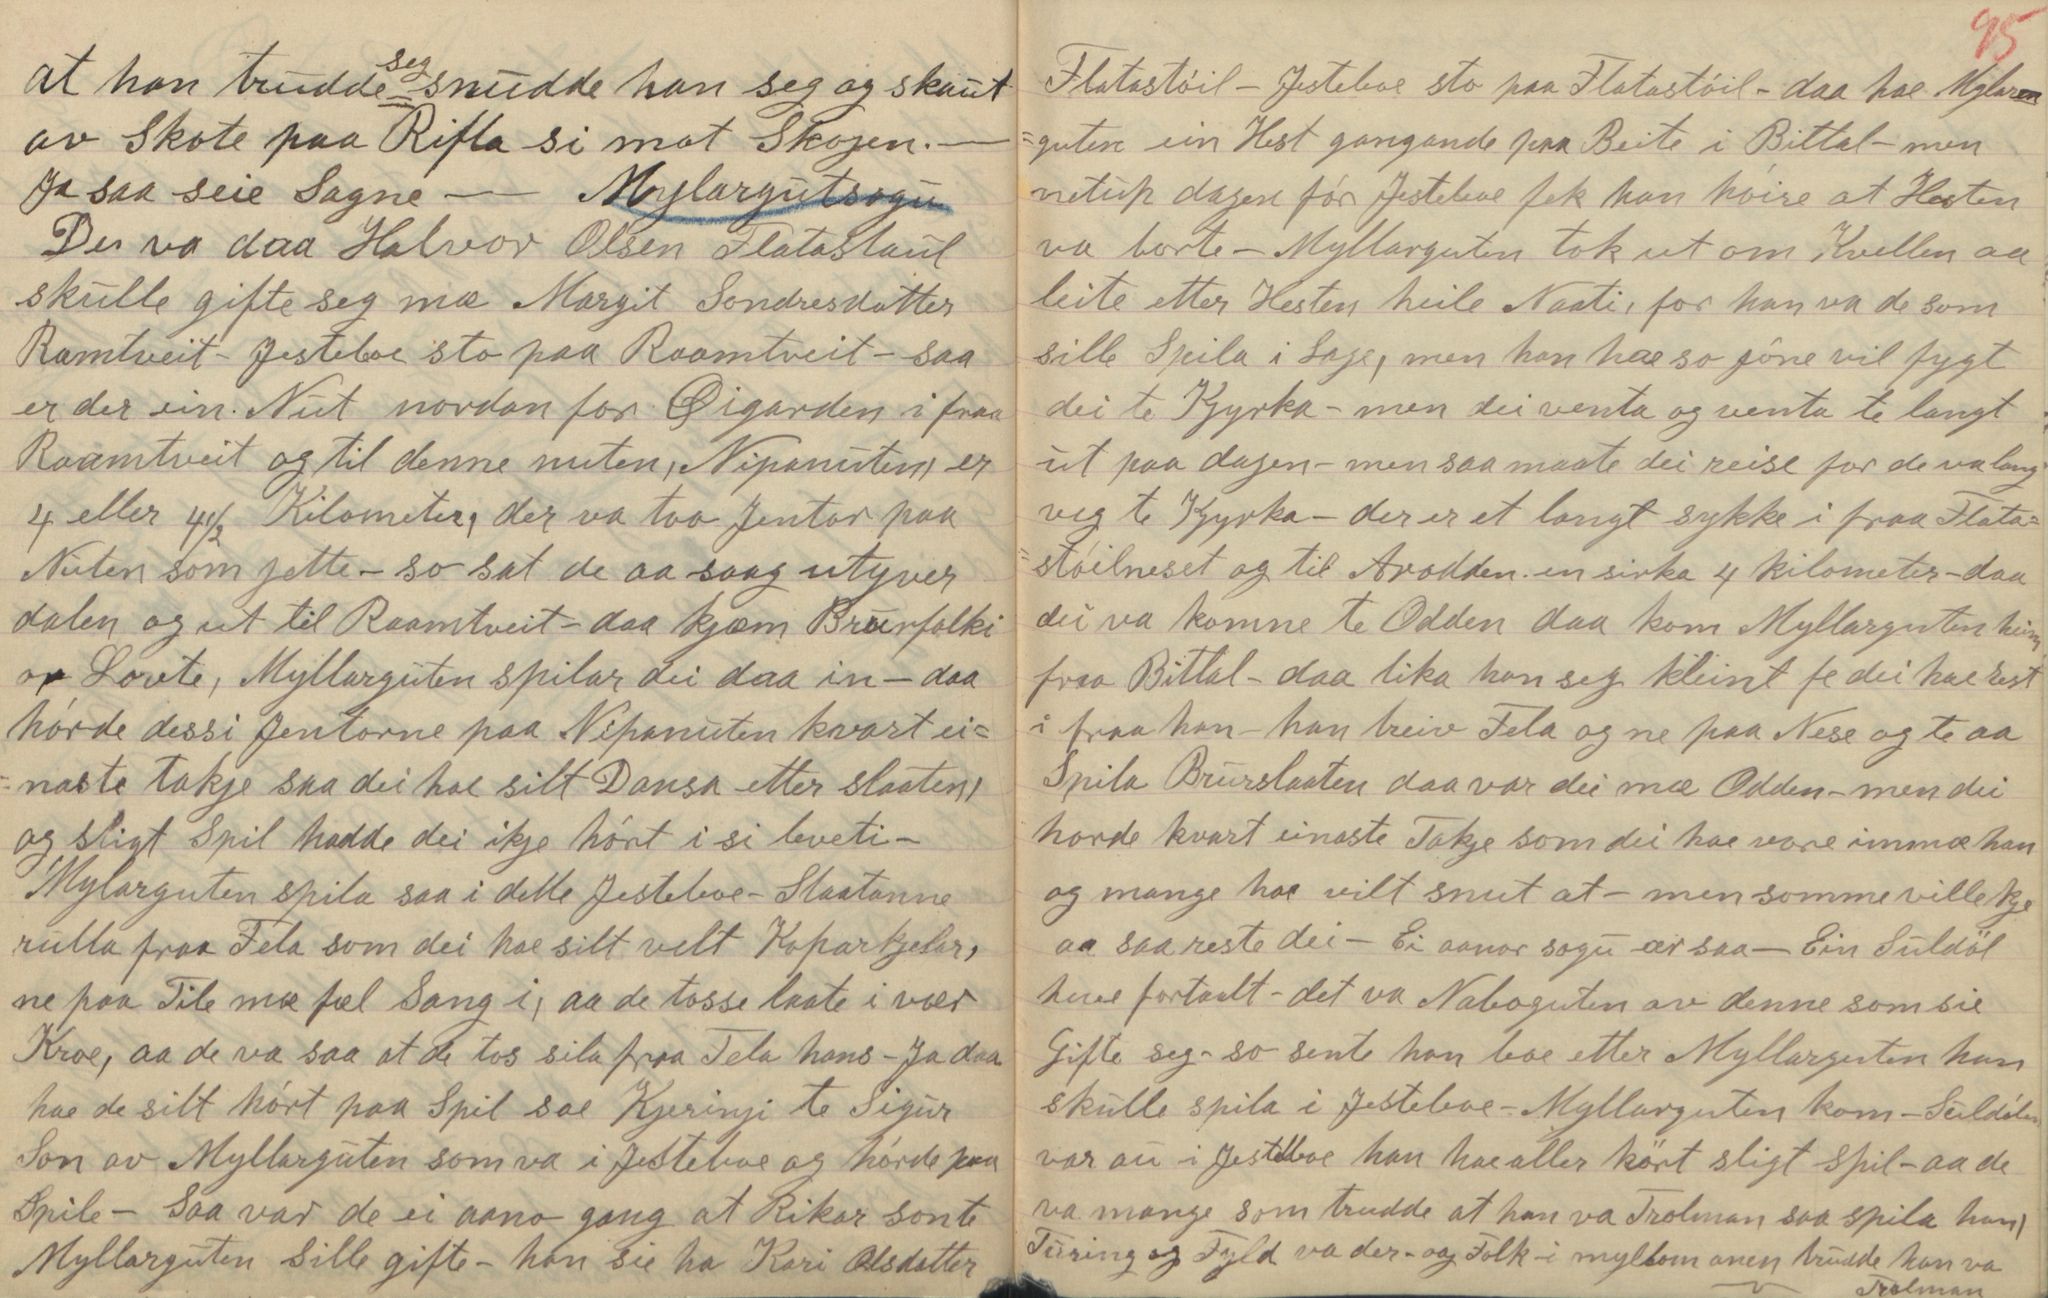 at han trudde seg snudde han seg og skaut
av Skote paa Rifla si mot Skogen. —
Ja saa seie Sagne — Mylargutsogu
De va daa Halvor Olsen Flatastaul
skulle gifte seg mæ Margit Sondresdatter
Ramtveit - Jesteboe sto paa Raamtveit - saa
er der ein Nut nordan for Øigarden i fraa
Raamtveit og til denne nuten, Nipanuten, er
4 eller 4½ Kilometer, der va too Jentor paa
Nuten som jette - so sat de aa saag utyver
dalen og ut til Raamtveit - daa kjæm Brurfolki
or Lovte, Myllarguten spilar dei daa in - daa
hórde dessi Jentorne paa Nipanuten kvart ei=
=naste takje saa dei hae silt Dansa etter slaaten,
og sligt Spil hadde dei ikje hórt i si leveti -
Mylarguten spila saa i dette Jesteboe - Slaatanne
rulla fraa Fela som dei hae silt velt Koparkjelar,
ne paa Tile mæ fæl Sang i, aa de tosse laate i vær
Kroe, aa de va saa at de tos sila fraa Fela hans - Ja daa
hae de silt hórt paa Spil sae Kjeringi te Sigur
Son av Myllarguten som va i Jesteboe og hórde paa
Spile - Saa var de ei aano gong at Rikar sonte
Myllarguten sille gifte - han sie ha Kari Olsdatter
95
Flatastóil - Jesteboe sto paa Flatastóil - daa hae Mylaren
=guten ein Hest gangande paa Beite i Bittal - men
netup dagen fór Jesteboe fek han hóire at Hesten
va borte - Myllarguten tok ut om Kvellen aa
leite etter Hesten heile Naati, for han va de som
sille Spila i Lage, men han hae so jóne vil fygt
dei te Kjyrka - men dei venta og venta te langt
ut paa dagen - men saa maate dei reise for de va lang
veg te Kjyrka - der er et langt sykke i fraa Flata=
=stóilneset og til Arodden. en sirka 4 kilometer - daa
dei va komne te Odden daa kom Myllarguten heim
fraa Bittal - daa lika han seg kleint fe dei hae rest
i fraa han - han treiv Fela og ne paa Nese og te aa
Spila Brurslaaten daa var dei mæ Odden - men dei
horde kvart einaste Takje som dei hae vore immæ han
og mange hae vilt snut at - men somme ville kje
aa saa reste dei - Ei aanor sogu ær saa - Ein Suldöl
heve fortault - det va Naboguten av denne som sie
Gifte seg - so sente han boe etter Myllarguten han
skulle spila i Jesteboe - Myllarguten kom - Suldölen
var au i Jesteboe han hae aller hört sligt Spil - aa de
va mange som trudde at han va Trolman saa spila han,
Turing og Fyld va der - og Folk i myllom anen trudde han va
Trolman